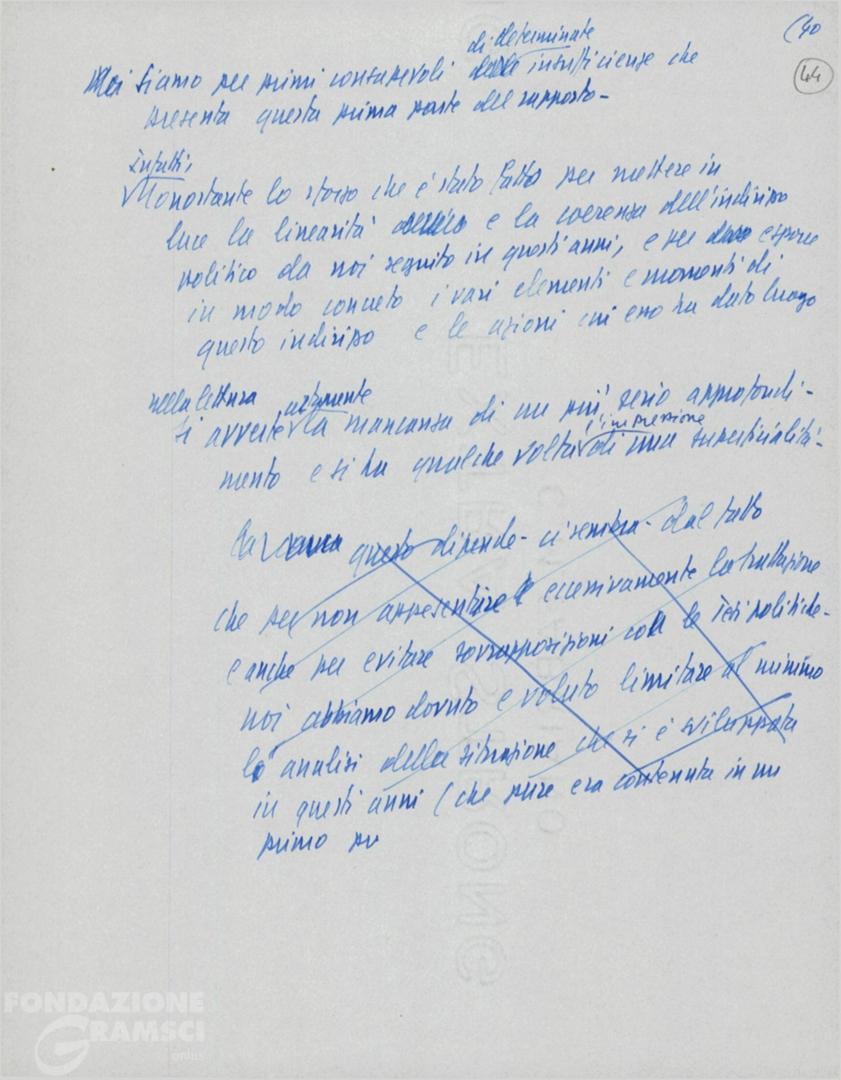 (40
44
di determinate
Noi siamo per primi consapevoli delle insufficienze che
presenta questa prima parte del rapporto-
infatti,
Nonostante lo sforzo che è stato fatto per mettere in
luce la linearità e la coerenza dell'indirizzo
politico da noi seguito in questi anni, e per esporre
in modo concreto i vari elementi e momenti di
questo indirizzo e le azioni cui esso ha dato luogo
nella lettura
si avverte la mancanza di un più serio approfondi-
l'impressione
mento e si ha qualche volta di una superficialità-
La causa questo dipende- ci sembra- dal fatto
che per non appesantire eccessivamente la trattazione
e anche per evitare sovrapposizioni con le Tesi politiche-
noi abbiamo dovuto e voluto limitare al minimo
la analisi della situazione che si è sviluppata
in questi anni (che pure era contenuta in un
primo pr
FONDAZIONE
GRAMSCI
onlus